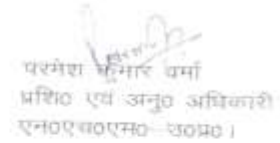 परमेश कुमार वर्मा
प्रशि0 एवं अनु0 अधिकारी
एन0एच0एम0 उ0प्र0।